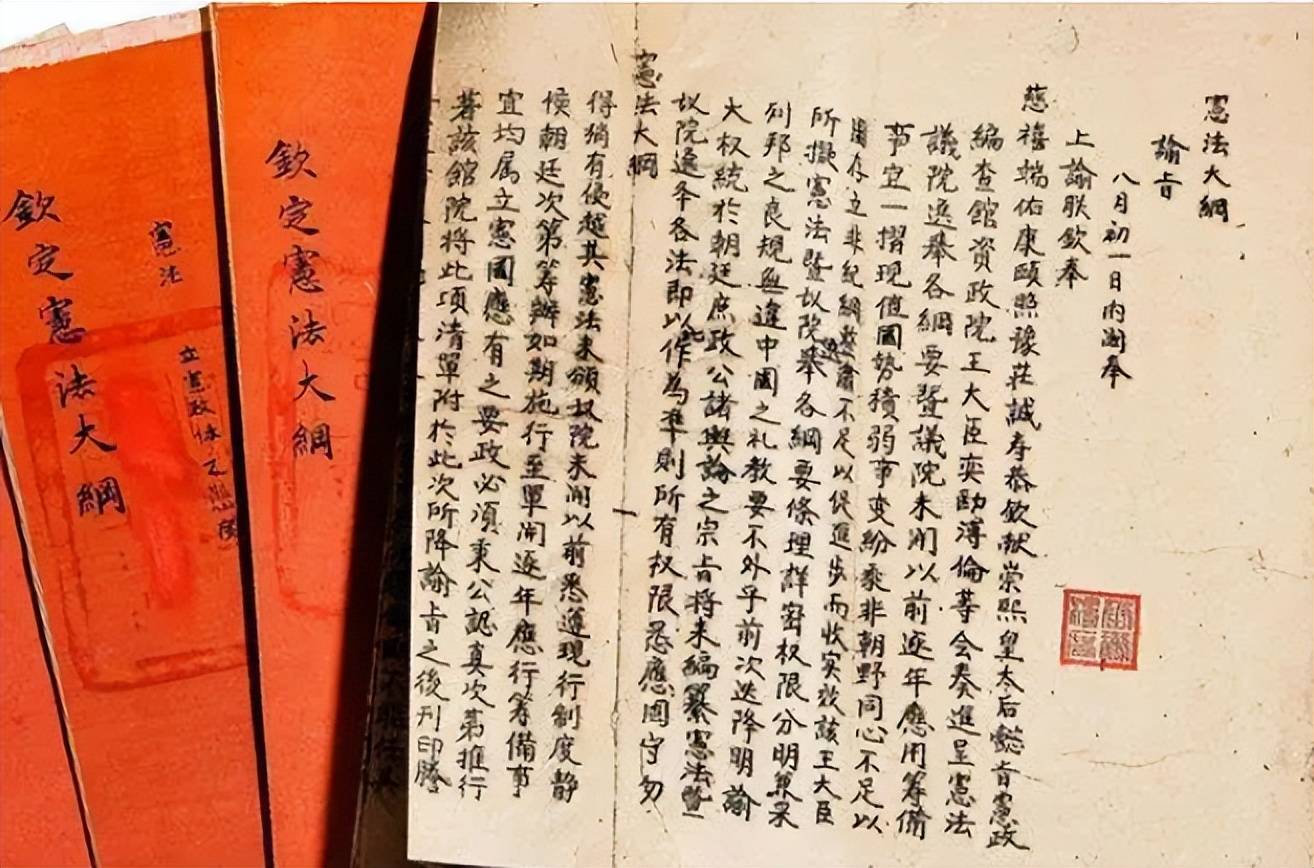 憲法大綱
諭旨
八月初一日內閣奉
上諭朕欽奉
慈禧端佑康頤照豫莊誠寿恭欽献崇熙皇太后懿旨憲政
編查館資政院王大臣奕劻溥倫等会奏進呈憲法
議院选舉各綱要暨議院未開以前逐年應用筹備
事宜一摺現值國勢積弱事变紛乘非朝野同心不足以
圖存立非紀綱整肅不足以促進步而收实效該王大臣
所擬憲法暨议院选舉各綱要條理詳密权限分明兼采
列邦之良規無違中國之礼教要不外乎前次迭降明諭
大权統於朝廷庶政公諸輿論之宗旨将来編纂憲法暨
议院逐条各法即以此作為準則所有权限悉應固守勿
憲法大綱 一
得稍有侵越其憲法未頒议院未開以前悉遵現行制度静
候朝廷次第筹辦如期施行至單開逐年應行筹備事
宜均属立憲國應有之要政必須秉公認真次第推行
著該館院将此項清單附於此次所降諭旨之後刊印謄
欽定憲法大綱
憲法
立憲政体
欽定憲法大綱